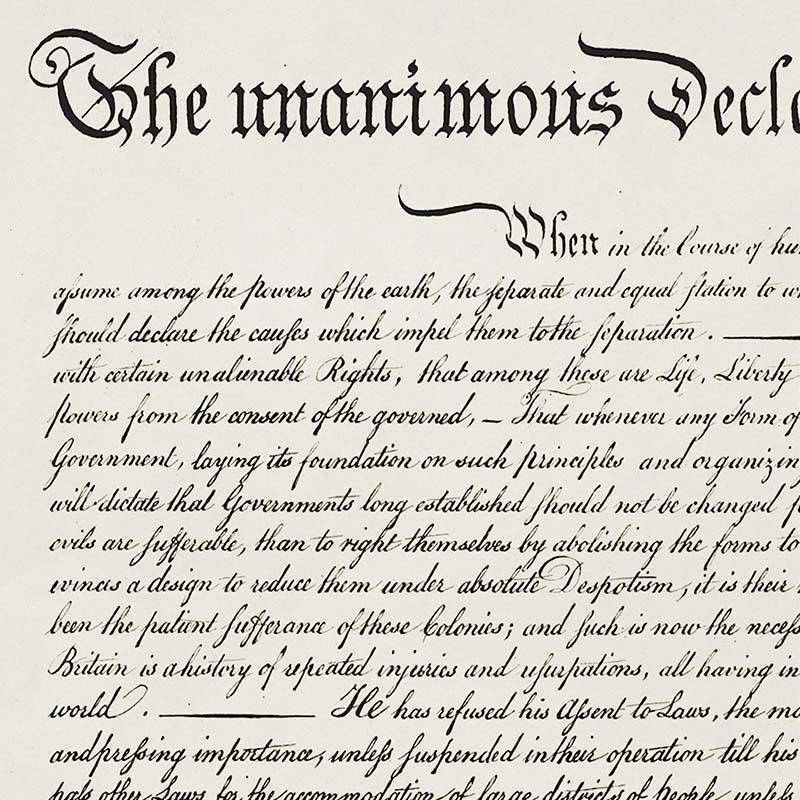 The unanimous Decla
When in the Course of hu
aſsume among the powers of the earth, the ſeparate and equal ſtation to w
ſhould declare the cauſes which impel them to the ſeparation . —
with certain unalienable Rights, that among these are Life, Liberty
powers from the consent of the governed, — That whenever any Form of
Government, laying its foundation on such principles and organizin
will dictate that Governments long established ſhould not be changed f
evils are ſufferable, than to right themselves by abolishing the forms to
evinces a design to reduce them under absolute Despotism, it is their
been the patient ſufferance of these Colonies; and ſuch is now the neceſs
Britain is a history of repeated injuries and uſurpations, all having in
world . — He has refused his Aſsent to Laws, the mo
and preſsing importance, unleſs ſuspended in their operation till his
paſs other Laws for the accommodation of large districts of people, unleſs